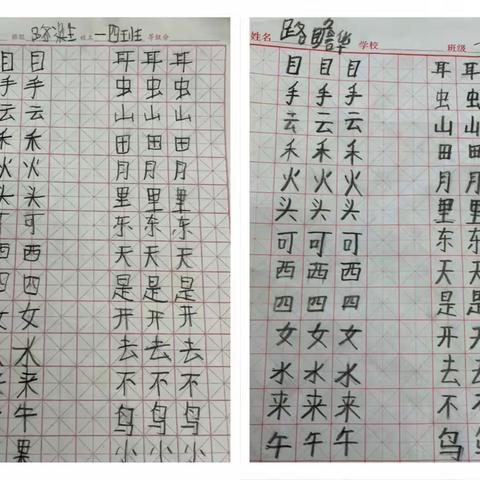 班级 一四班 等级分
目目 耳耳耳
手手 虫虫虫
云云 山山山
禾禾 田田田
火火 月月月
头头 里里里
可可 东东东
西西 天天天
四四 是是是
女女 开开开
水 去去去
来 不不不
牛 鸟鸟鸟
果 小小小
姓名 路瞻华 学校 班级
目目目 耳耳
手手手 虫虫
云云云 山山
禾禾禾 田田
火火火 月月
头头头 里里
可可可 东东
西西西 天天
四四四 是是
女女女 开开
水水水 去去
来来来 不不
午午午 鸟